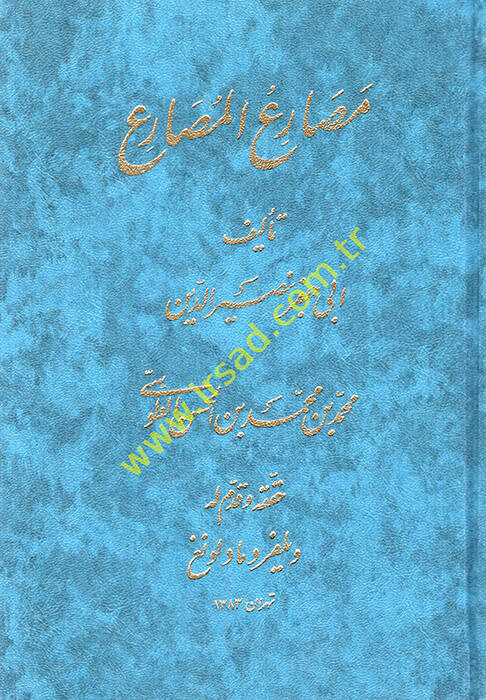 مَصَارِعُ المُصَارِع
تأليف
ابي جعفر نصير الدين
محمد بن محمد بن الحسن الطوسي
حققه وقدم له
ويلفرد مادلونغ
تهران ١٣٨٣
www.irsad.com.tr